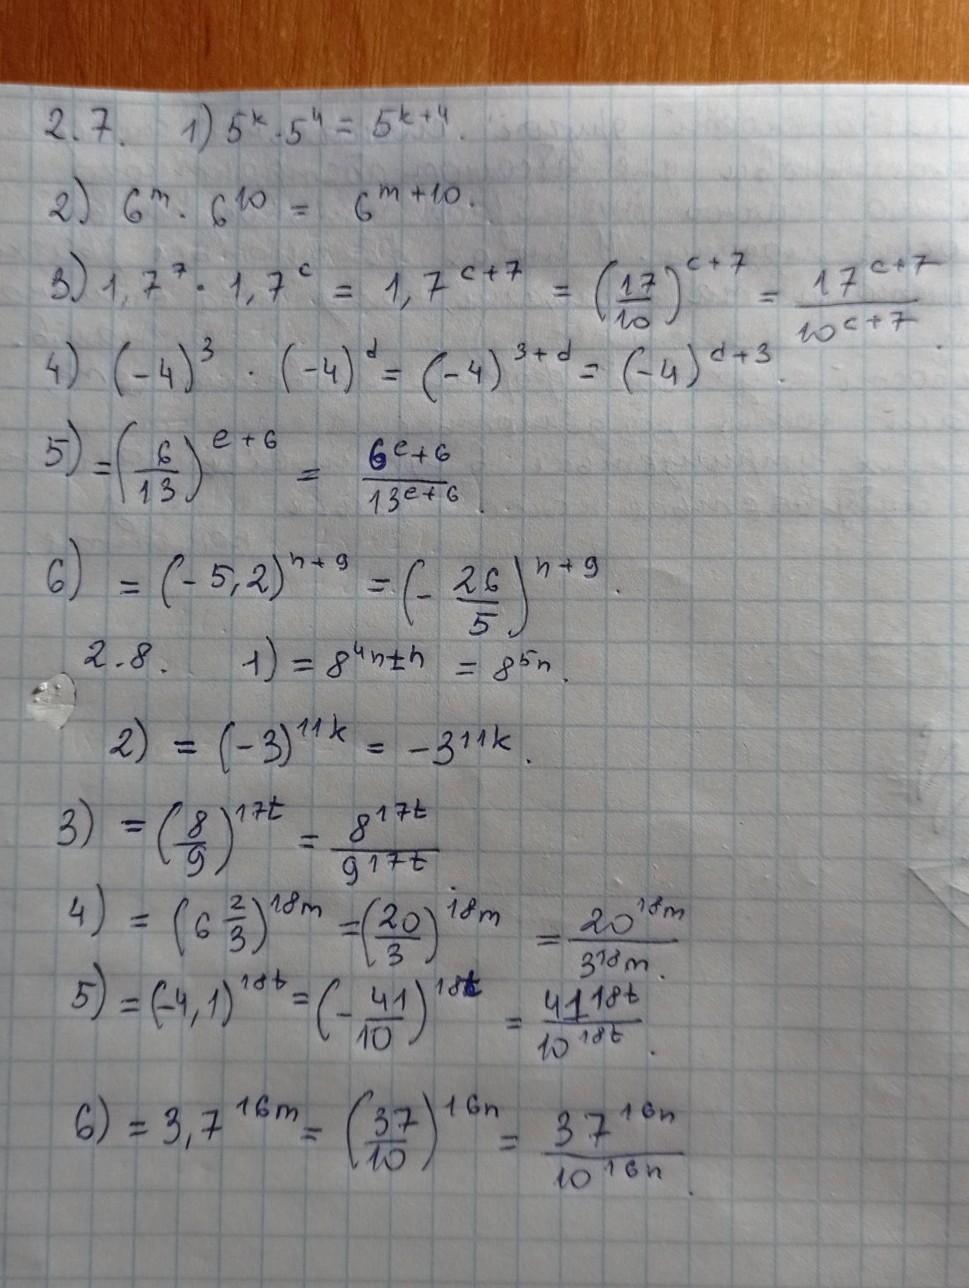 2.7. 1) 5^k · 5^4 = 5^{k+4}.
2) 6^m · 6^{10} = 6^{m+10}.
3) 1,7^7 · 1,7^c = 1,7^{c+7} = (17/10)^{c+7} = 17^{c+7}/10^{c+7}.
4) (-4)^3 · (-4)^d = (-4)^{3+d} = (-4)^{d+3}.
5) = (6/13)^{e+6} = 6^{e+6}/13^{e+6}.
6) = (-5,2)^{n+9} = (-26/5)^{n+9}.
2.8. 1) = 8^{4n+n} = 8^{5n}.
2) = (-3)^{11k} = -3^{11k}.
3) = (8/9)^{17t} = 8^{17t}/9^{17t}.
4) = (6 2/3)^{18m} = (20/3)^{18m} = 20^{18m}/3^{18m}.
5) = (-4,1)^{18t} = (-41/10)^{18t} = 41^{18t}/10^{18t}.
6) = 3,7^{16m} = (37/10)^{16n} = 37^{16n}/10^{16n}.